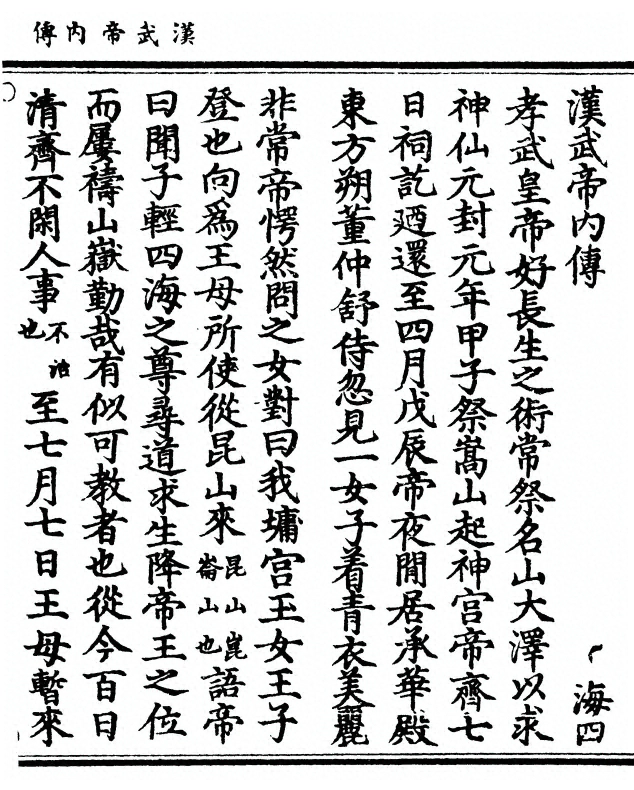 漢武帝內傳
漢武帝內傳
海四
孝武皇帝好長生之術常祭名山大澤以求
神仙元封元年甲子祭嵩山起神宮帝齊七
日祠訖廼還至四月戊辰帝夜閒居承華殿
東方朔董仲舒侍忽見一女子着青衣美麗
非常帝愕然問之女對曰我墉宮玉女王子
登也向爲王母所使從昆山來昆山崑崙山也語帝
曰聞子輕四海之尊尋道求生降帝王之位
而屢禱山嶽勤哉有似可教者也從今百日
清齊不閑人事不治也至七月七日王母暫來